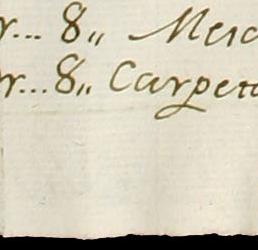 r... 8,, Mesc
r... 8,, Carpeta